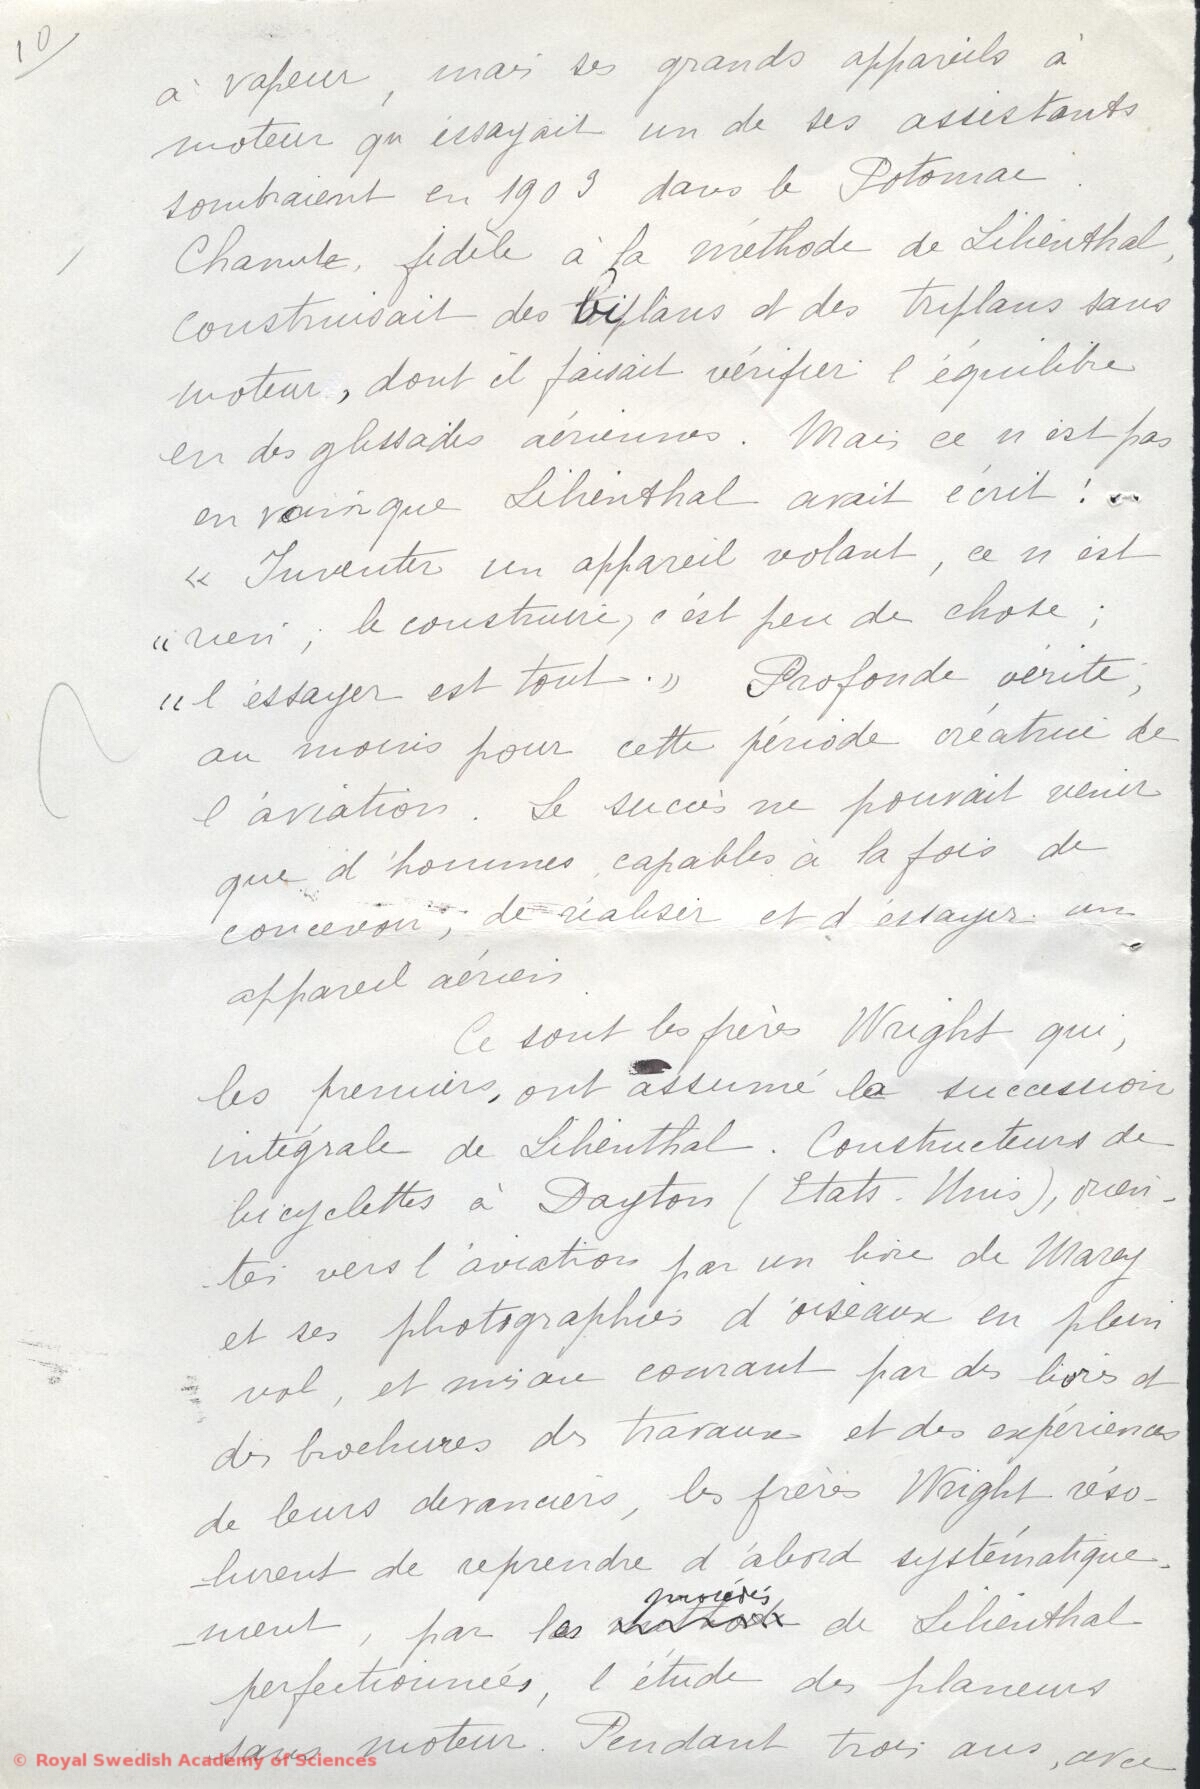 10
à vapeur, mais ses grands appareils à
moteur qu'essayait un de ses assistants
sombraient en 1903 dans le Potomac.
Chanute, fidèle à la méthode de Lilienthal,
construisait des biplans et des triplans sans
moteur, dont il faisait vérifier l'équilibre
en des glissades aériennes. Mais ce n'est pas
en vain que Lilienthal avait écrit :
« Inventer un appareil volant, ce n'est
« rien ; le construire, c'est peu de chose ;
« l'essayer est tout. » Profonde vérité,
au moins pour cette période créatrice de
l'aviation. Le succès ne pouvait venir
que d'hommes capables à la fois de
concevoir, de réaliser et d'essayer un
appareil aérien
Ce sont les frères Wright qui,
les premiers, ont assumé la succession
intégrale de Lilienthal. Constructeurs de
bicyclettes à Dayton (Etats-Unis), orien-
-tés vers l'aviation par un livre de Marey
et ses photographies d'oiseaux en plein
vol, et mis au courant par des livres et
des brochures des travaux et des expériences
de leurs devanciers, les frères Wright réso-
-lurent de reprendre d'abord systématique-
procédés
-ment, par les de Lilienthal
perfectionnées, l'étude des planeurs
sans moteur. Pendant trois ans, avec
© Royal Swedish Academy of Sciences